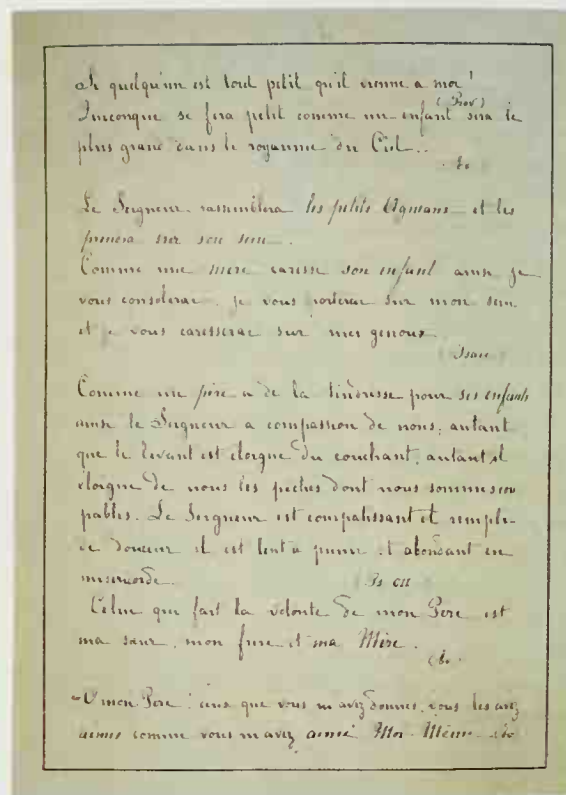 Si quelqu'un est tout petit qu'il vienne a moi!
(Prov)
Quiconque se fera petit comme un enfant sera le
plus grand dans le royaume du Ciel..
Ev
Le Seigneur rassemblera les petits Agneaux et les
prendra sur son sein.
Comme une mère caresse son enfant ainsi je
vous consolerai, je vous porterai sur mon sein
et je vous caresserai sur mes genoux
(Isaïe)
Comme un père a de la tendresse pour ses enfants
ainsi le Seigneur a compassion de nous; autant
que le levant est éloigné du couchant, autant il
éloigne de nous les péchés dont nous sommes cou
pables. Le Seigneur est compatissant et rempli
de douceur il est lent à punir et abondant en
miséricorde. (Ps CII
Celui qui fait la volonté de mon Père est
ma sœur, mon frère et ma Mère.
(Ev.
O mon Père! ceux que vous m'avez donnés, vous les avez
aimés comme vous m'avez aimé Moi-Même. Ev